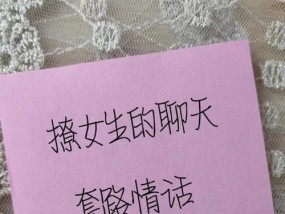 撩女生的聊天
套路情话